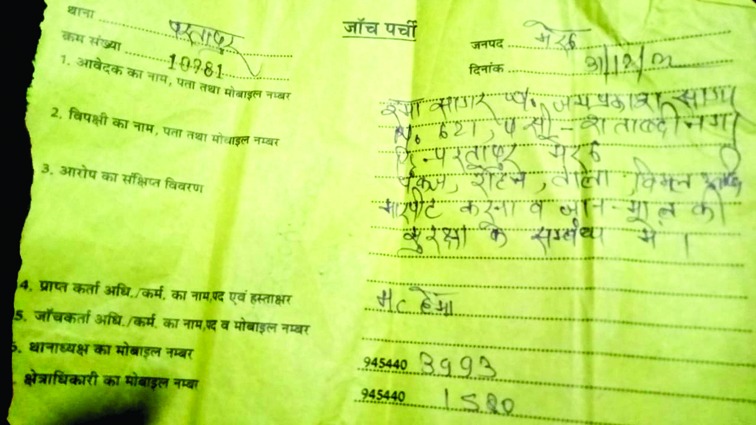 जाँच पर्ची
थाना परतापुर
जनपद मेरठ
क्रम संख्या 10981
दिनांक 31/12/
1. आवेदक का नाम, पता तथा मोबाइल नम्बर
सागर जयप्रकाश सागर
621, शताब्दीनगर
2. विपक्षी का नाम, पता तथा मोबाइल नम्बर
परतापुर मेरठ
3. आरोप का संक्षिप्त विवरण
विमल
मारपीट करना व जान-माल की
सुरक्षा के सम्बन्ध में ।
4. प्राप्त कर्ता अधि./कर्म. का नाम,पद एवं हस्ताक्षर
हेमा
5. जाँचकर्ता अधि./कर्म. का नाम,पद व मोबाइल नम्बर
थानाध्यक्ष का मोबाइल नम्बर
945440 3993
क्षेत्राधिकारी का मोबाइल नम्बर
945440